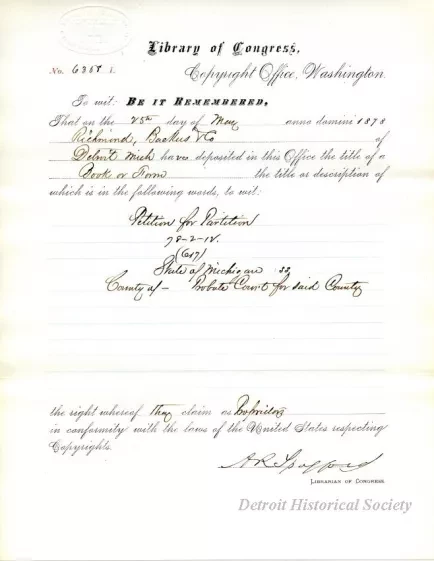 Library of Congress,
No. 6388 I.
Copyright Office, Washington.
To wit: BE IT REMEMBERED,
That on the 25th day of May anno domini 1878
Richmond, Backus & Co of
Detroit Mich have deposited in this Office the title of a
Book or Form the title or description of
which is in the following words, to wit:
Petition for Partition
78-2-12.
(617)
State of Michigan ss
County of — Probate Court for said County
the right whereof they claim as Proprietors
in conformity with the laws of the United States respecting
Copyrights.
A R Spofford
LIBRARIAN OF CONGRESS.
Detroit Historical Society